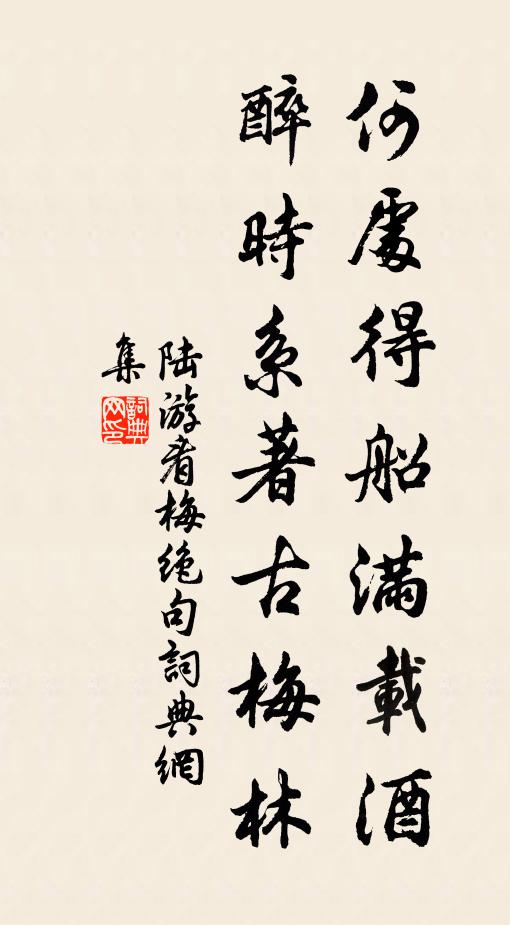 何處得船滿載酒
醉時系著古梅林
陆游看梅绝句詞典網
集
詞典网印